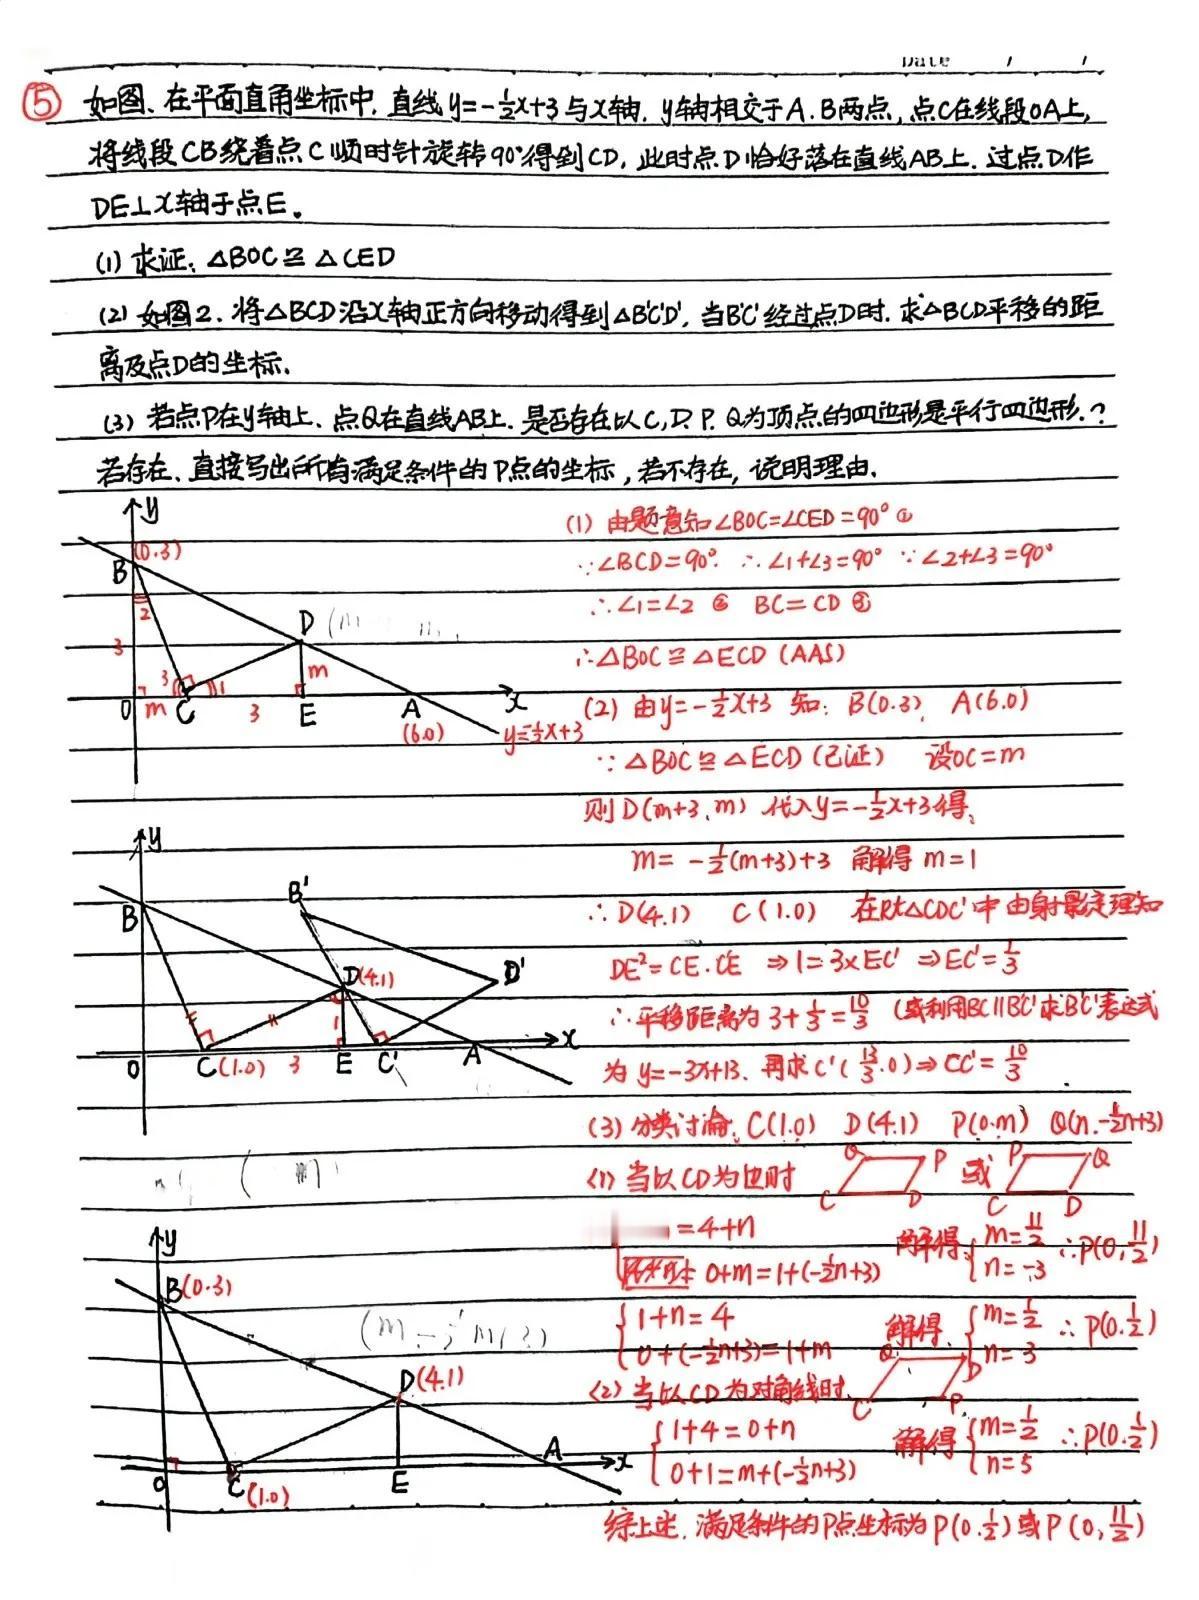 Date / /
⑤ 如图、在平面直角坐标中,直线y=-½x+3与x轴,y轴相交于A.B两点,点C在线段OA上,
将线段CB绕着点C顺时针旋转90°得到CD,此时点D恰好落在直线AB上.过点D作
DE⊥x轴于点E。
(1) 求证:△BOC≌△CED
(2) 如图2.将△BCD沿x轴正方向移动得到△B'C'D',当B'C'经过点D时.求△BCD平移的距
离及点D的坐标.
(3) 若点P在y轴上、点Q在直线AB上.是否存在以C,D.P.Q为顶点的四边形是平行四边形.?
若存在、直接写出所有满足条件的P点的坐标,若不存在,说明理由.
y
(0.3)
B
2
D
3
3
1
m
m
0
C
3
E
A
x
(6.0)
y=-½x+3
(1) 由题意知∠BOC=∠CED=90° ①
∵∠BCD=90° ∴∠1+∠3=90° ∵∠2+∠3=90°
∴∠1=∠2 ② BC=CD ③
∴△BOC≌△ECD (AAS)
(2) 由y=-½x+3 知: B(0.3) A(6.0)
∵△BOC≌△ECD (已证) 设OC=m
则D(m+3,m) 代入y=-½x+3得,
m=-½(m+3)+3 解得 m=1
∴D(4.1) C(1.0) 在Rt△CDC'中由射影定理知
DE²=CE·C'E ⇒1=3×EC' ⇒EC'=1/3
∴平移距离为3+1/3=10/3 (或利用BC∥B'C'求B'C'表达式
为 y=-3x+13.再求C'(13/3.0)⇒CC'=10/3
y
B
B'
D(4.1)
D'
1
0
C(1.0)
3
E
C'
A
x
(3) 分类讨论,C(1.0) D(4.1) P(0.m) Q(n.-½n+3)
<1> 当以CD为边时
Q P
C D
或
P Q
C D
=4+n
0+m=1+(-½n+3)
解得 m=11/2 n=-3 ∴P(0,11/2)
1+n=4
0+(-½n+3)=1+m
解得 m=½ n=3 ∴P(0.½)
<2> 当以CD为对角线时
Q D
C P
1+4=0+n
0+1=m+(-½n+3)
解得 m=½ n=5 ∴P(0.½)
综上述,满足条件的P点坐标为P(0.½)或P(0,11/2)
y
B(0.3)
D(4.1)
0
C
(1.0)
E
A
x